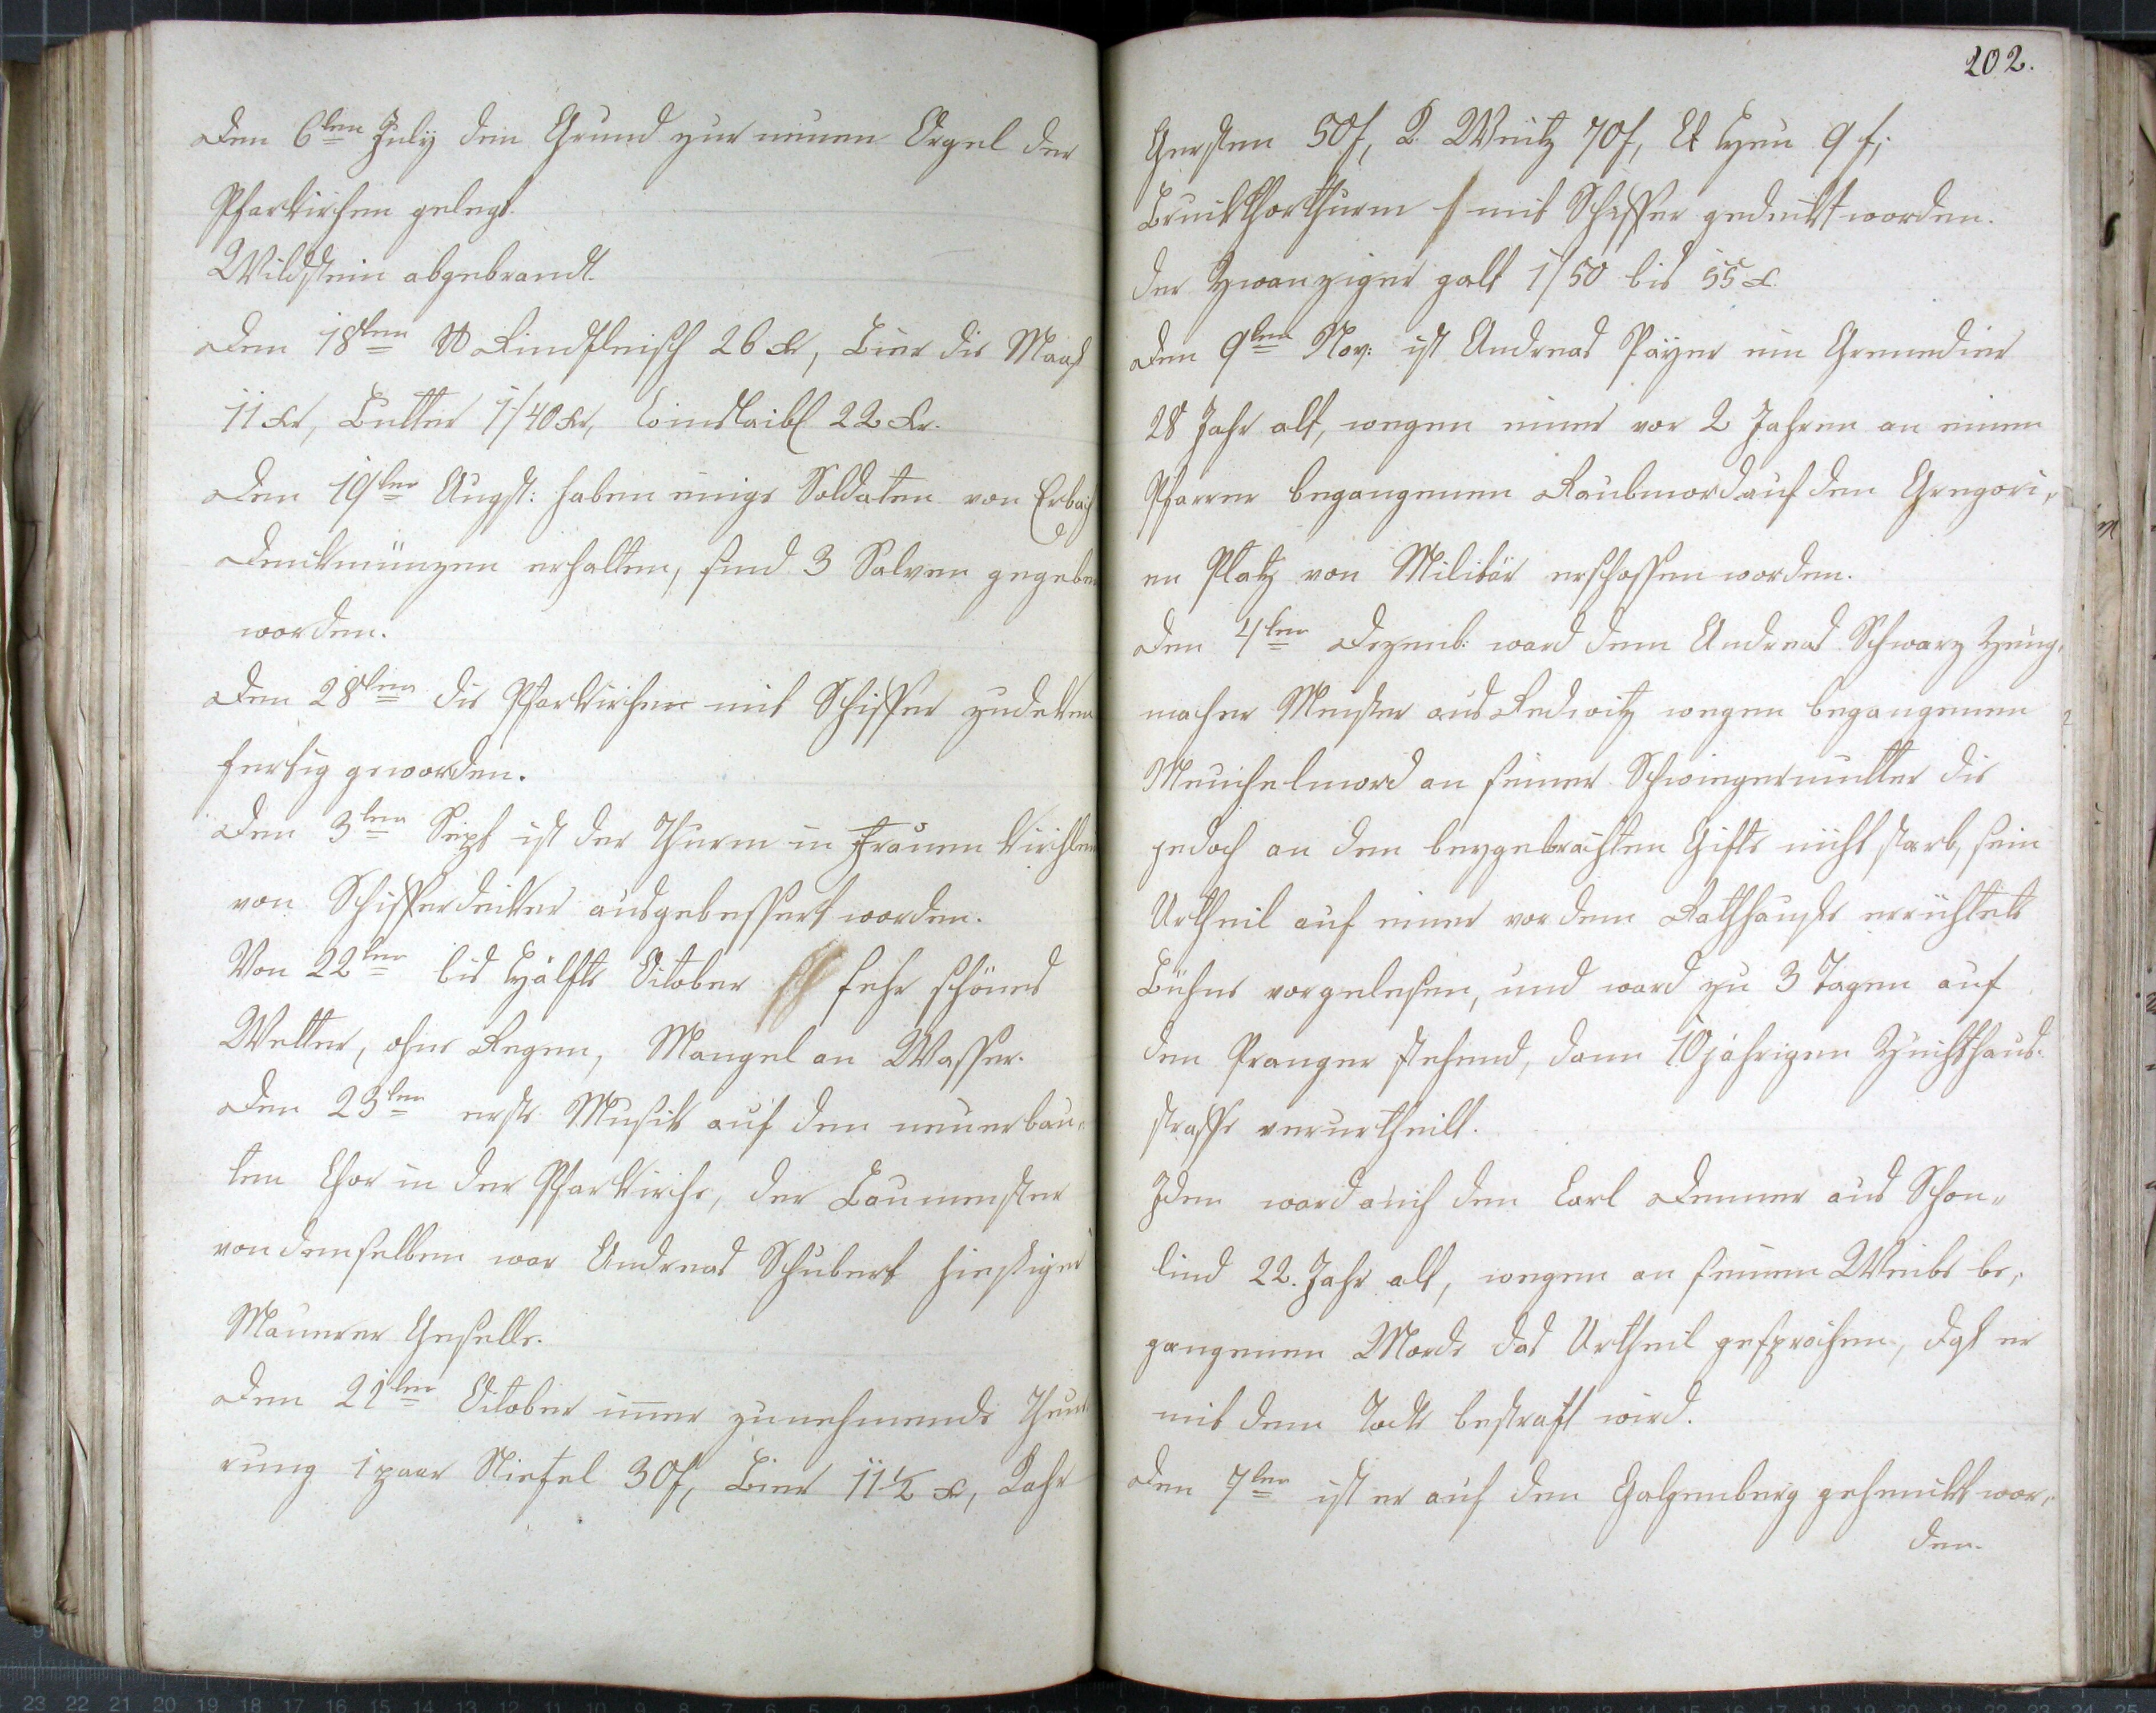 Den 6ten July den Grund zur neuen Orgel der
Pfarkirchen gelegt.
Wildstein abgebrandt.
Den 18ten ℔ Rindfleisch 26 xr, Bier die Maas
11 xr, Butter 1/40 xr, 22 xr.
Den 19ten Augst: haben einige Soldaten von Erbach
Denkmünzen erhalten, sind 3 Salven gegeben
worden.
Den 28ten die Pfarkirchen mit Schiffer zudeken
fertig geworden.
Den 3ten Sept ist der Thurm in Frauen Kirchlein
von Schifferdecker ausgebessert worden.
Von 22ten bis Hälfte October sehr schönes
Wetter, ohne Regen, Mangel an Wasser.
Den 23ten erste Musik auf den neuerbau-
ten Chor in der Pfarkirche, der Baumeister
von demselben war Andreas Schubert hiesiger
Maurer Geselle.
Den 21ten October immer zunehmende Theue
rung 1 paar Stiefel 30 f, Bier 11½ xr, Kahr
202.
Gersten 50 f, K. Weitz 70 f, Ct Heu 9 f,
Bruckthorthurm mit Schiffer gedeckt worden.
Der Zwanziger galt 1/50 bis 55 x.
Den 9ten Nov: ist Andreas Payer ein Grenadier
28 Jahr alt, wegen eines vor 2 Jahren an einen
Pfarrer begangenen Raubmord auf den Gregori,
en Platz von Militär erschossen worden.
Den 4ten Dezemb: ward dem Andreas Schwarz Zeug,
macher Meister aus Redwitz wegen begangenen
Meuchelmord an seiner Schwiegermutter die
jedoch an den beygebrachten Gifte nicht starb, sein
Urtheil auf einer vor dem Rathhause errichtete
Bühne vorgelesen, und ward zu 3 Tagen auf
den Pranger stehend, dann 10jährigen Zuchthaus-
straffe verurtheilt.
Idem ward auch den Carl Demmer aus Schon-
lind 22. Jahr alt, wegen an seinem Weibe be,
gangenen Morde das Urtheil gesprochen, daß er
mit dem Tode bestraft wird.
Den 7ten ist er auf den Galgenberg gehenckt wor,
den.